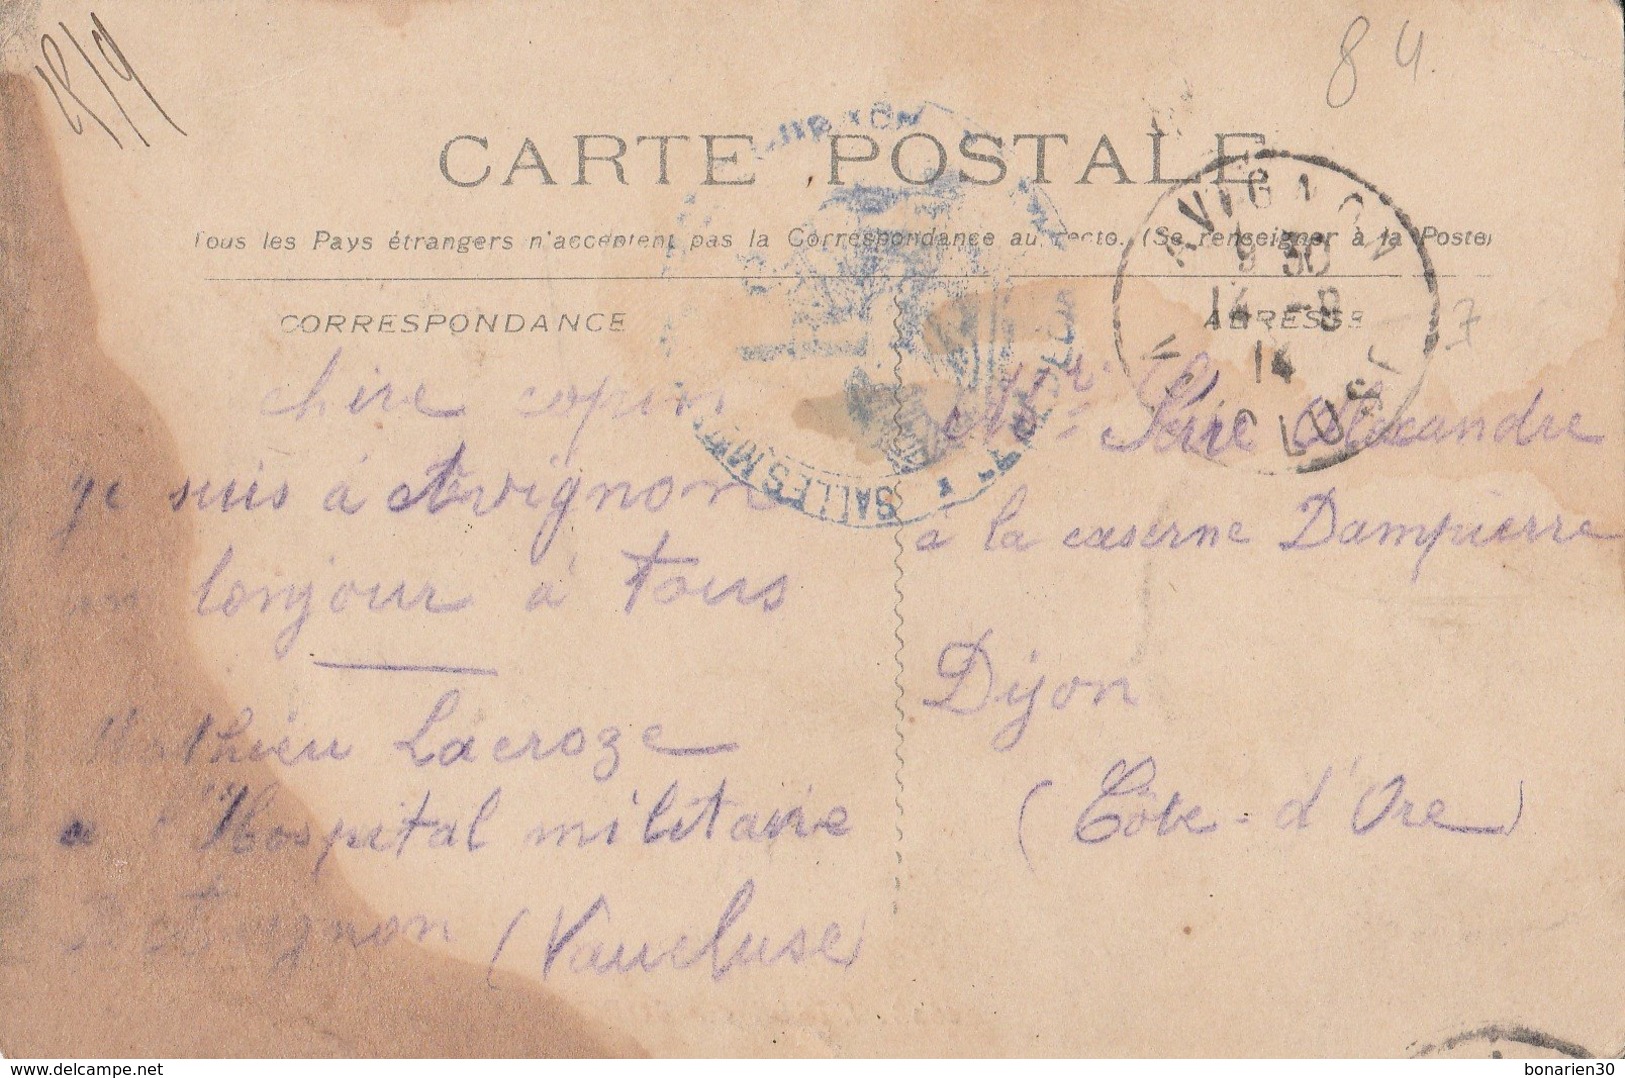 15/9
84.
CARTE POSTALE
Tous les Pays étrangers n'acceptent pas la Correspondance au recto. (Se renseigner à la Poste)
CORRESPONDANCE
ADRESSE
AVIGNON
9 30
14 - 9
14
VAUCLUSE
SALLES MI
7
chire copin
je suis à Avignon
un bonjour à tous
Mathieu Lacroze
a l'Hospital militaire
d'Avignon (Vaucluse)
Mr. Serre Alexandre
à la caserne Dampierre
Dijon
(Côte-d'Ore)
delcampe.net
bonarien30